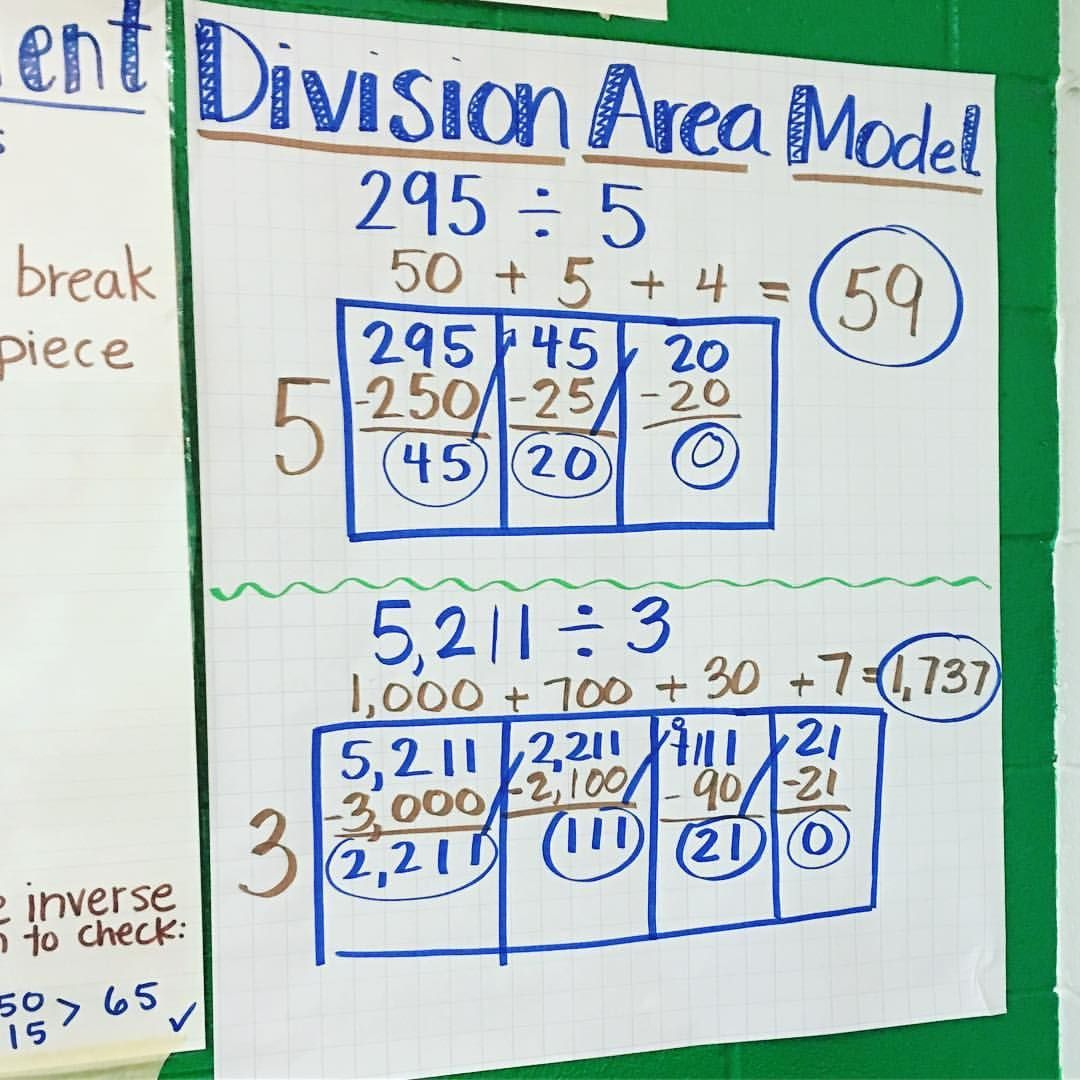 ent
break
piece
inverse
to check:
50 > 65 ✓
15
Division Area Model
295 ÷ 5
50 + 5 + 4 = 59
295 45 20
5 -250 -25 -20
45 20 0
5,211 ÷ 3
1,000 + 700 + 30 + 7 = 1,737
5,211 2,211 111 21
3 -3,000 -2,100 -90 -21
2,211 111 21 0